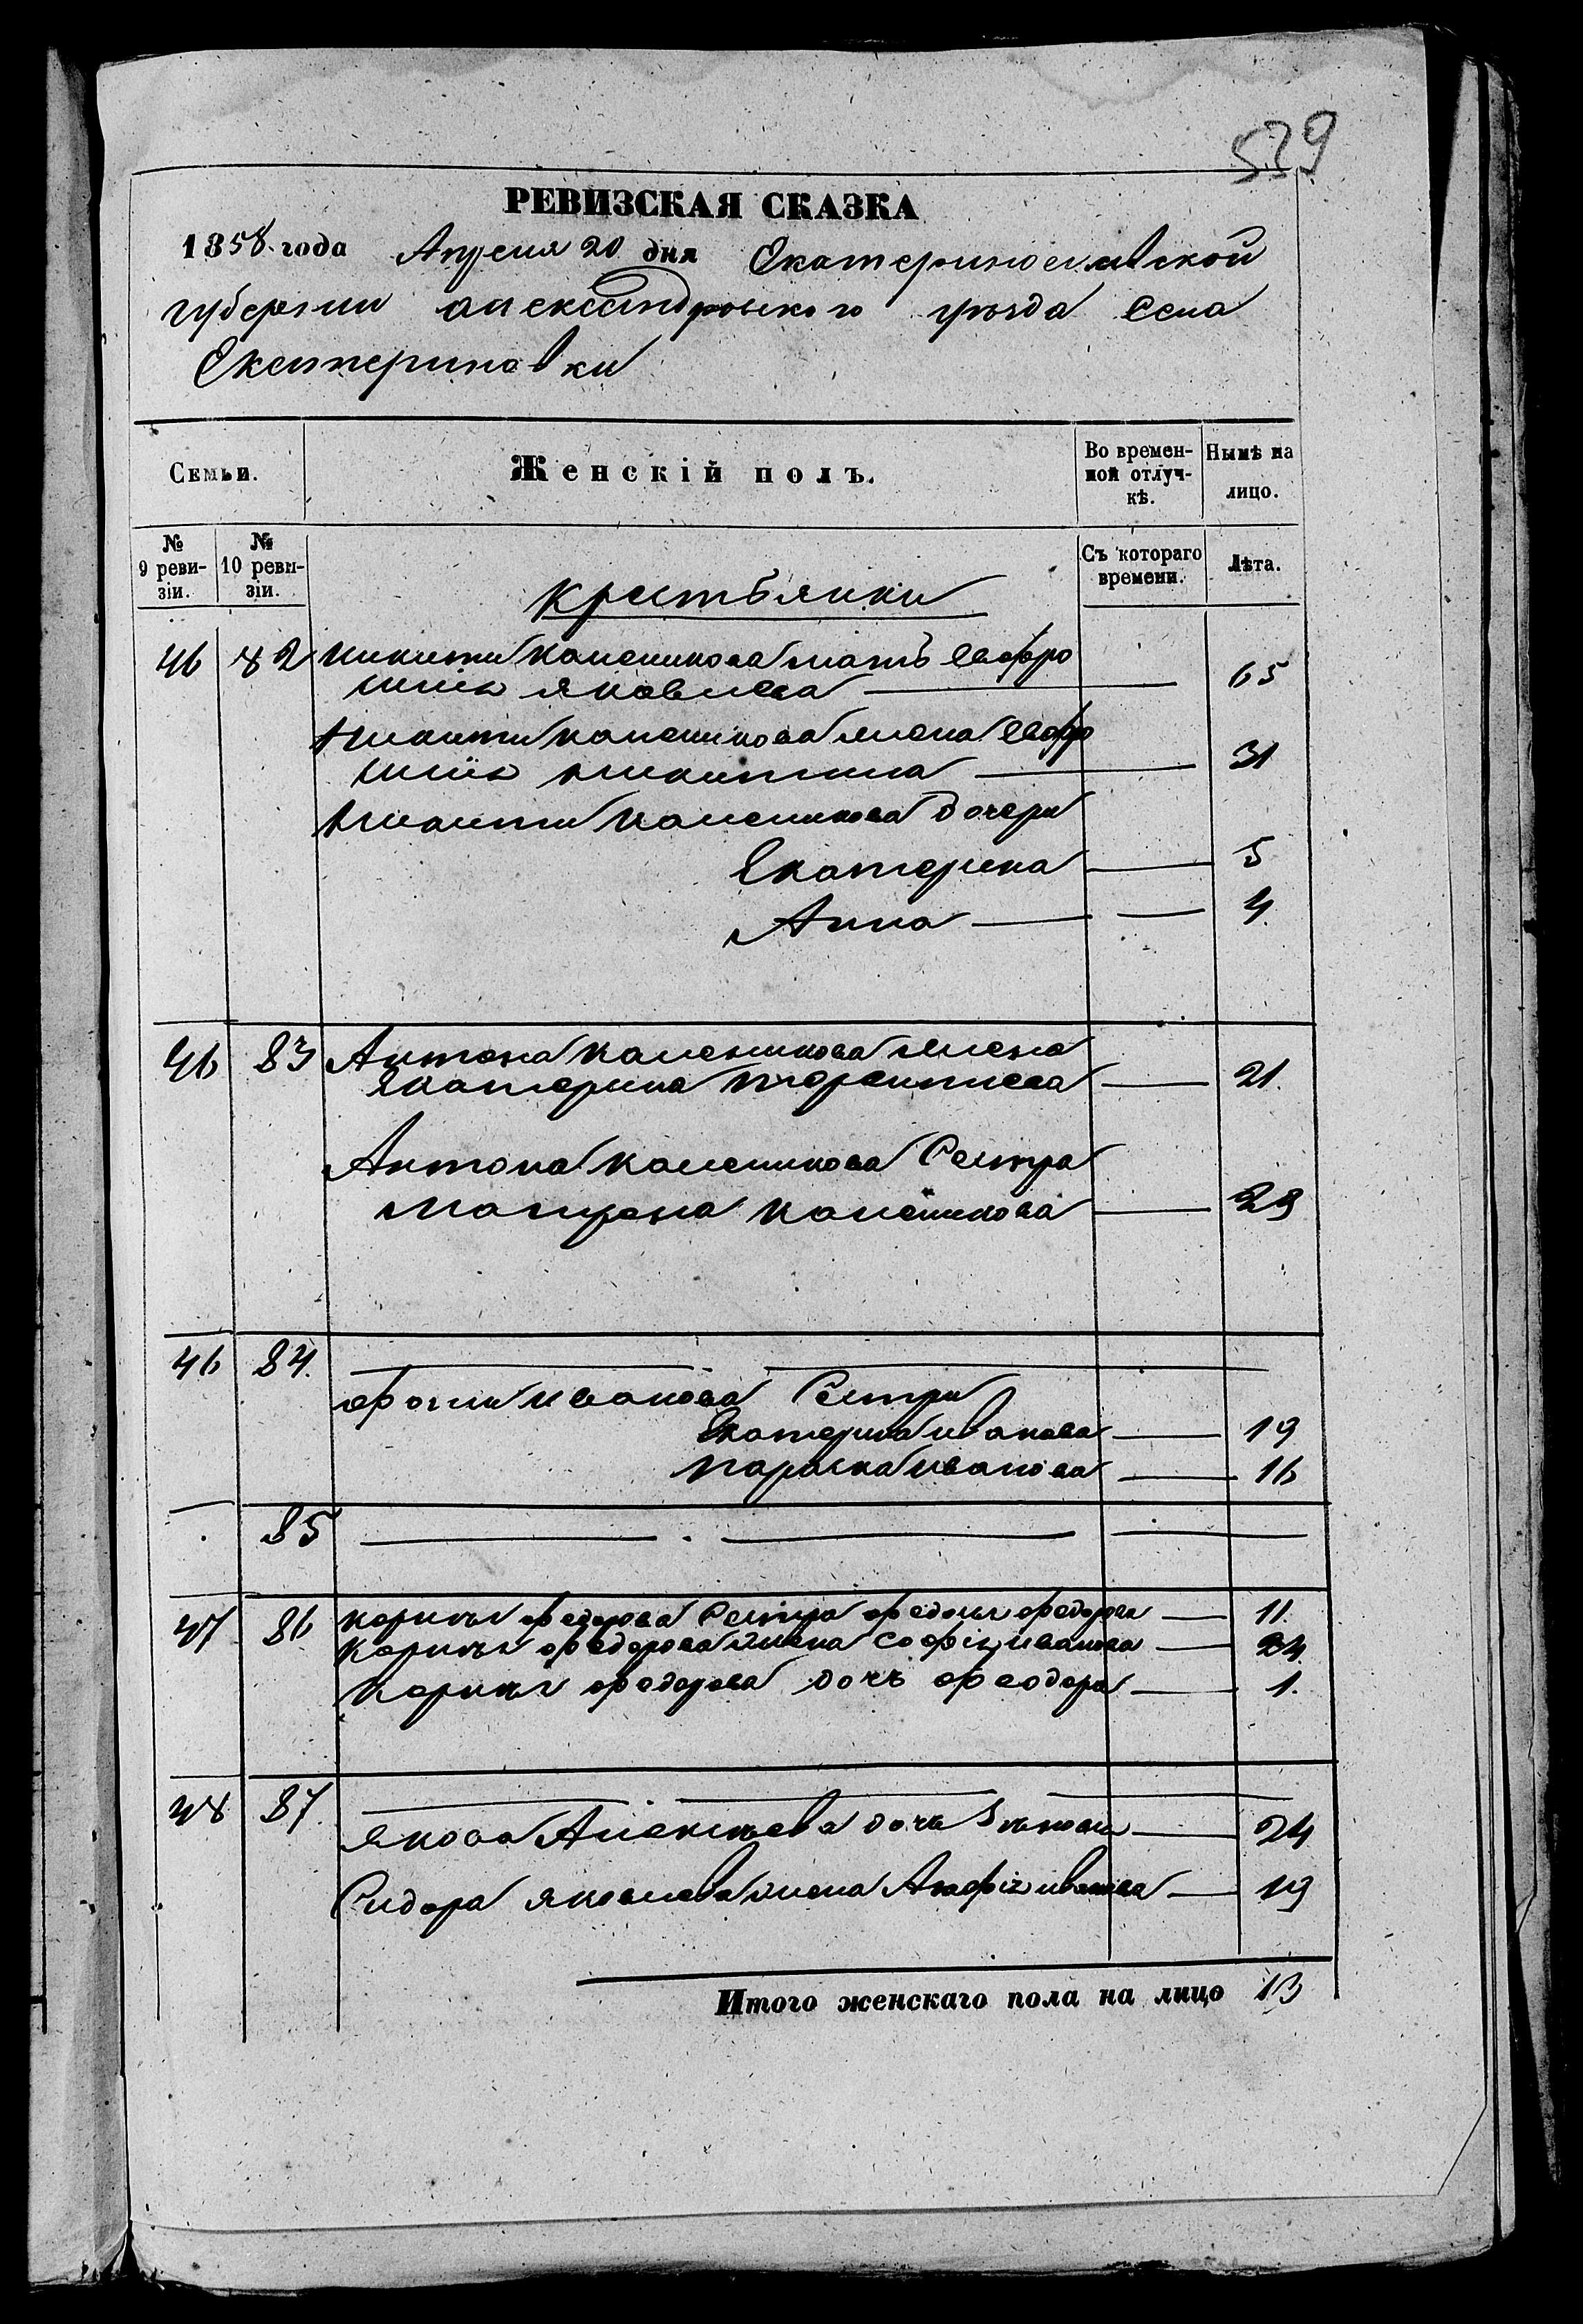 539
РЕВИЗСКАЯ СКАЗКА
1858 года Апреля 20 дня Екатеринославской
губернии александровского уѣзда Села
Екатериновки
Семьи.
Женскій полъ.
Во времен-
ной отлуч-
кѣ.
Нынѣ на
лицо.
№
9 реви-
зіи.
№
10 реви-
зіи.
Съ котораго
времени.
Лѣта.
крестьянки
46 82 никиты каленикова мать Евфро
синія яковлева 65
никиты каленикова жена Евфро
синія никитина 31
никиты каленикова дочери
Екатерина 5
Анна 4
46 83 Антона каленикова жена
Екатерина терентиева 21.
Антона каленикова Сестра
Матрена каленикова 23
46 84.
фомы иванова Сестры
Екатерина иванова 19
параска иванова 16
85
47 86 корнѣя федорова Сестра федосья федорова 11
корнѣя федорова жена софія иванова 24
корнѣя федорова дочь феодора 1.
48 87.
якова Алексѣева дочь 24
Сидора яковлева жена Агафія иванова 19
Итого женскаго пола на лицо 13